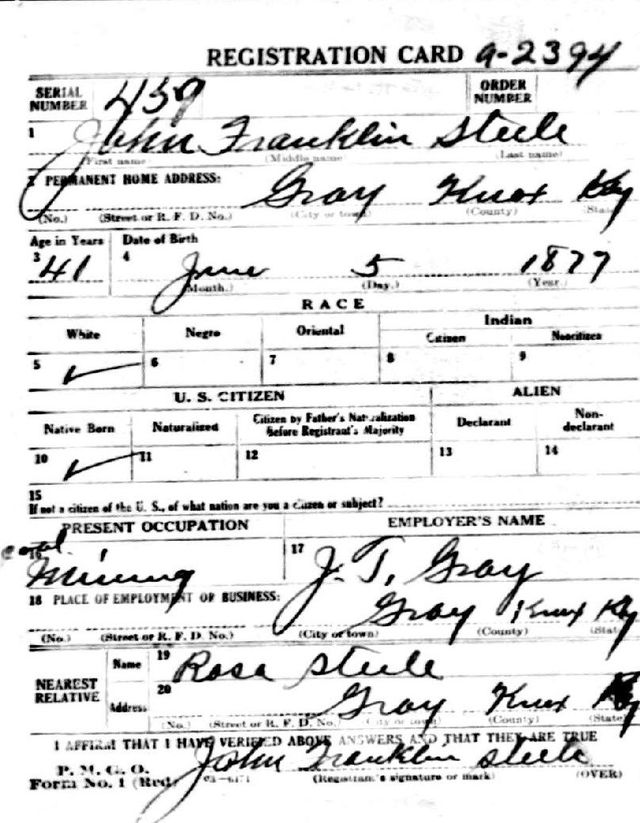 REGISTRATION CARD a-2394
SERIAL NUMBER 459 ORDER NUMBER
1 John Franklin Steele
(First name) (Middle name) (Last name)
2 PERMANENT HOME ADDRESS: Gray Knox Ky
(No.) (Street or R. F. D. No.) (City or town) (County) (State)
Age in Years Date of Birth
3 41 4 June 5 1877
(Month.) (Day.) (Year.)
RACE
White Negro Oriental Indian
Citizen Noncitizen
5 ✓ 6 7 8 9
U. S. CITIZEN ALIEN
Native Born Naturalized Citizen by Father's Naturalization Before Registrant's Majority Declarant Non-declarant
10 ✓ 11 12 13 14
15
If not a citizen of the U. S., of what nation are you a citizen or subject?
PRESENT OCCUPATION EMPLOYER'S NAME
16 coal Mining 17 J. T. Gray
18 PLACE OF EMPLOYMENT OR BUSINESS: Gray Knox Ky
(No.) (Street or R. F. D. No.) (City or town) (County) (State)
NEAREST RELATIVE Name 19 Rosa Steele
Address 20 Gray Knox Ky
(No.) (Street or R. F. D. No.) (City or town) (County) (State)
I AFFIRM THAT I HAVE VERIFIED ABOVE ANSWERS AND THAT THEY ARE TRUE
P. M. G. O.
Form No. 1 (Red) John Franklin Steele
(Registrant's signature or mark) (OVER)